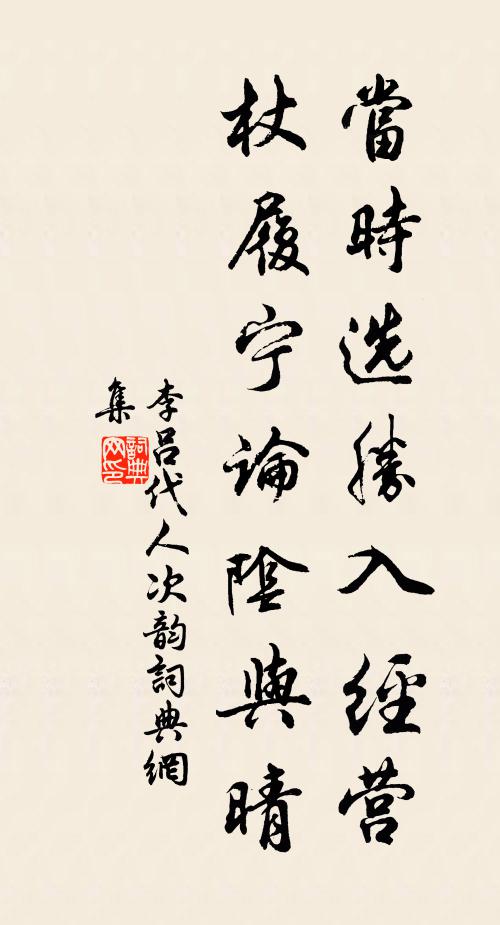 當時选勝入經营
杖履宁論陰與晴
李吕代人次韵詞典網
集
詞典网印